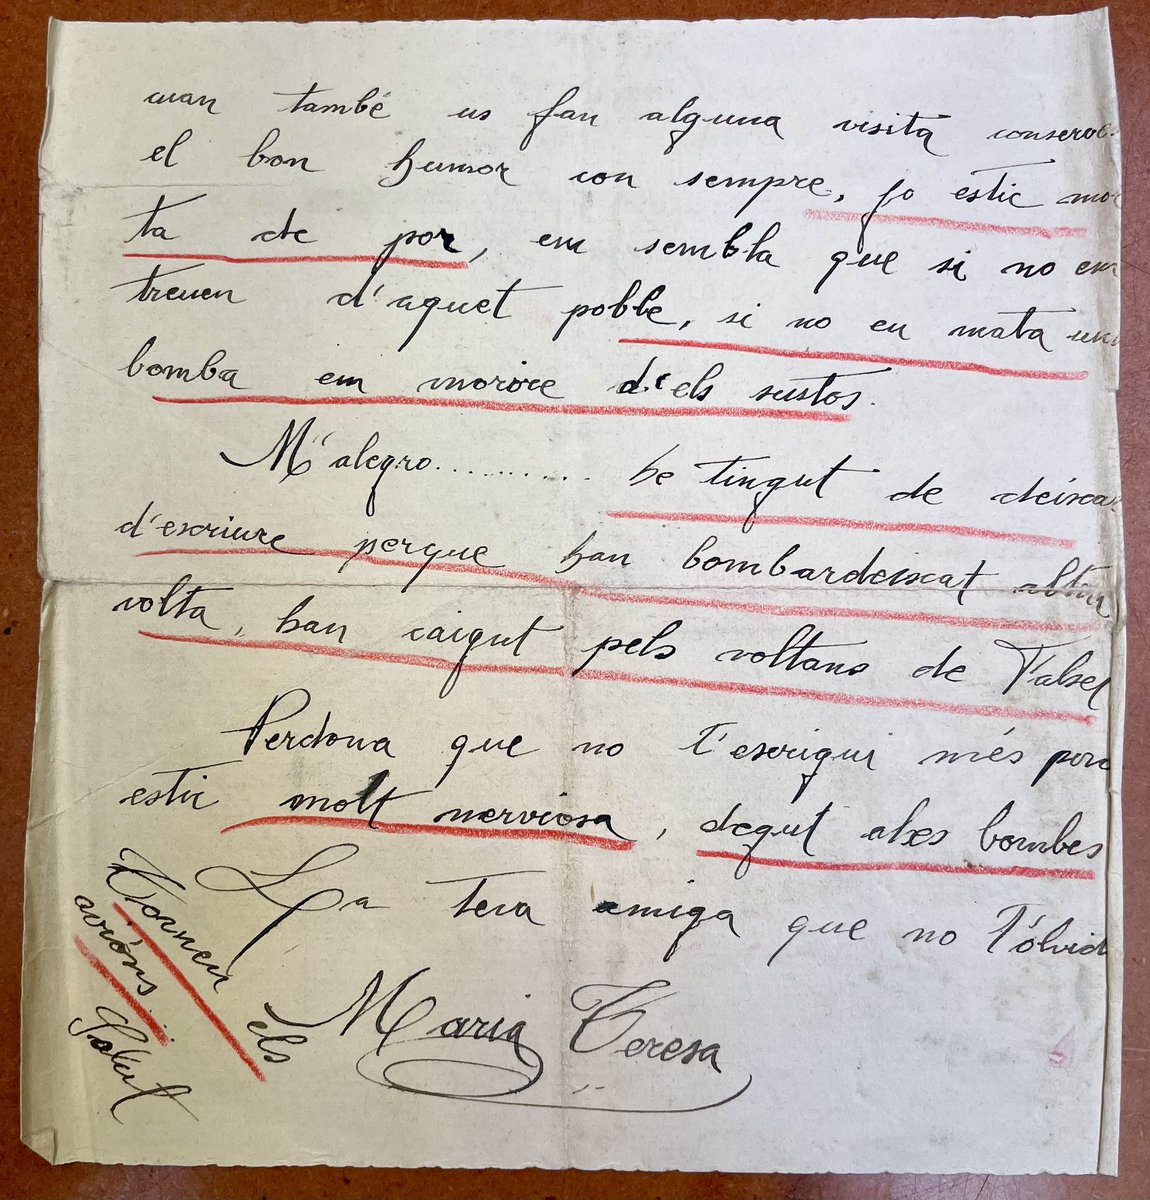 cuan també us fan alguna visita
el bon humor con sempre, jo estic mor
ta de por, em sembla que si no em
treuen d'aquet poble, si no em mata una
bomba em morire d'els sustos.
M'alegro.......... he tingut de deixar
d'escriure perque han bombardeixat altra
volta, han caigut pels voltans de Falset
Perdona que no t'escrigui més pero
estic molt nerviosa, degut a les bombes
La teva amiga que no t'olvid
Maria Teresa
Tornen els
avións
Salut